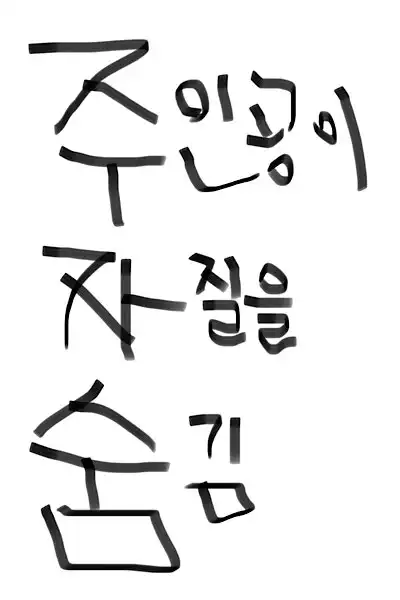 주인공이
자질을
숨김